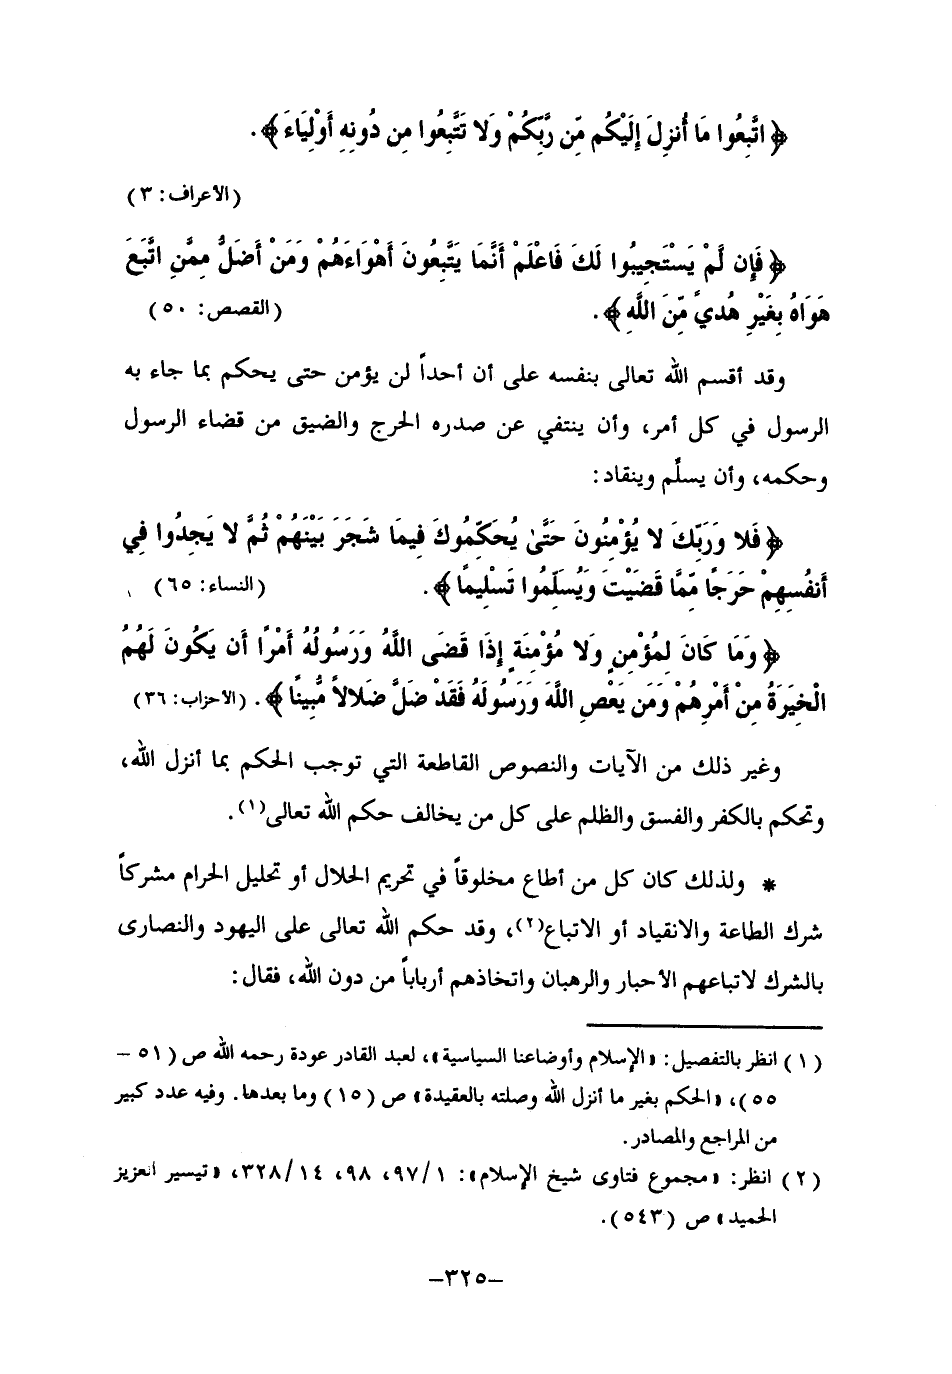 ﴿ اتَّبِعُوا مَا أُنزِلَ إِلَيْكُم مِّن رَّبِّكُمْ وَلا تَتَّبِعُوا مِن دُونِهِ أَوْلِيَاءَ ﴾.
(الأعراف: ٣)
﴿ فَإِن لَّمْ يَسْتَجِيبُوا لَكَ فَاعْلَمْ أَنَّمَا يَتَّبِعُونَ أَهْوَاءَهُمْ وَمَنْ أَضَلُّ مِمَّنِ اتَّبَعَ
هَوَاهُ بِغَيْرِ هُدىً مِّنَ اللَّهِ ﴾. (القصص: ٥٠)
وقد أقسم الله تعالى بنفسه على أن أحداً لن يؤمن حتى يحكم بما جاء به
الرسول في كل أمر، وأن ينتفي عن صدره الحرج والضيق من قضاء الرسول
وحكمه، وأن يسلّم وينقاد:
﴿ فَلا وَرَبِّكَ لا يُؤْمِنُونَ حَتَّىٰ يُحَكِّمُوكَ فِيمَا شَجَرَ بَيْنَهُمْ ثُمَّ لا يَجِدُوا فِي
أَنفُسِهِمْ حَرَجًا مِّمَّا قَضَيْتَ وَيُسَلِّمُوا تَسْلِيمًا ﴾. (النساء: ٦٥)
﴿ وَمَا كَانَ لِمُؤْمِنٍ وَلا مُؤْمِنَةٍ إِذَا قَضَى اللَّهُ وَرَسُولُهُ أَمْرًا أَن يَكُونَ لَهُمُ
الْخِيَرَةُ مِنْ أَمْرِهِمْ وَمَن يَعْصِ اللَّهَ وَرَسُولَهُ فَقَدْ ضَلَّ ضَلالاً مُّبِينًا ﴾. (الأحزاب: ٣٦)
وغير ذلك من الآيات والنصوص القاطعة التي توجب الحكم بما أنزل الله،
وتحكم بالكفر والفسق والظلم على كل من يخالف حكم الله تعالى(١).
* ولذلك كان كل من أطاع مخلوقاً في تحريم الحلال أو تحليل الحرام مشركاً
شرك الطاعة والانقياد أو الاتباع(٢)، وقد حكم الله تعالى على اليهود والنصارى
بالشرك لاتباعهم الأحبار والرهبان واتخاذهم أرباباً من دون الله، فقال:
(١) انظر بالتفصيل: «الإسلام وأوضاعنا السياسية»، لعبد القادر عودة رحمه الله ص (٥١ –
٥٥)، «الحكم بغير ما أنزل الله وصلته بالعقيدة» ص (١٥) وما بعدها. وفيه عدد كبير
من المراجع والمصادر.
(٢) انظر: «مجموع فتاوى شيخ الإسلام»: ٩٧/١، ٩٨، ٣٢٨/١٤، «تيسير العزيز
الحميد» ص (٥٤٣).
–٣٢٥–